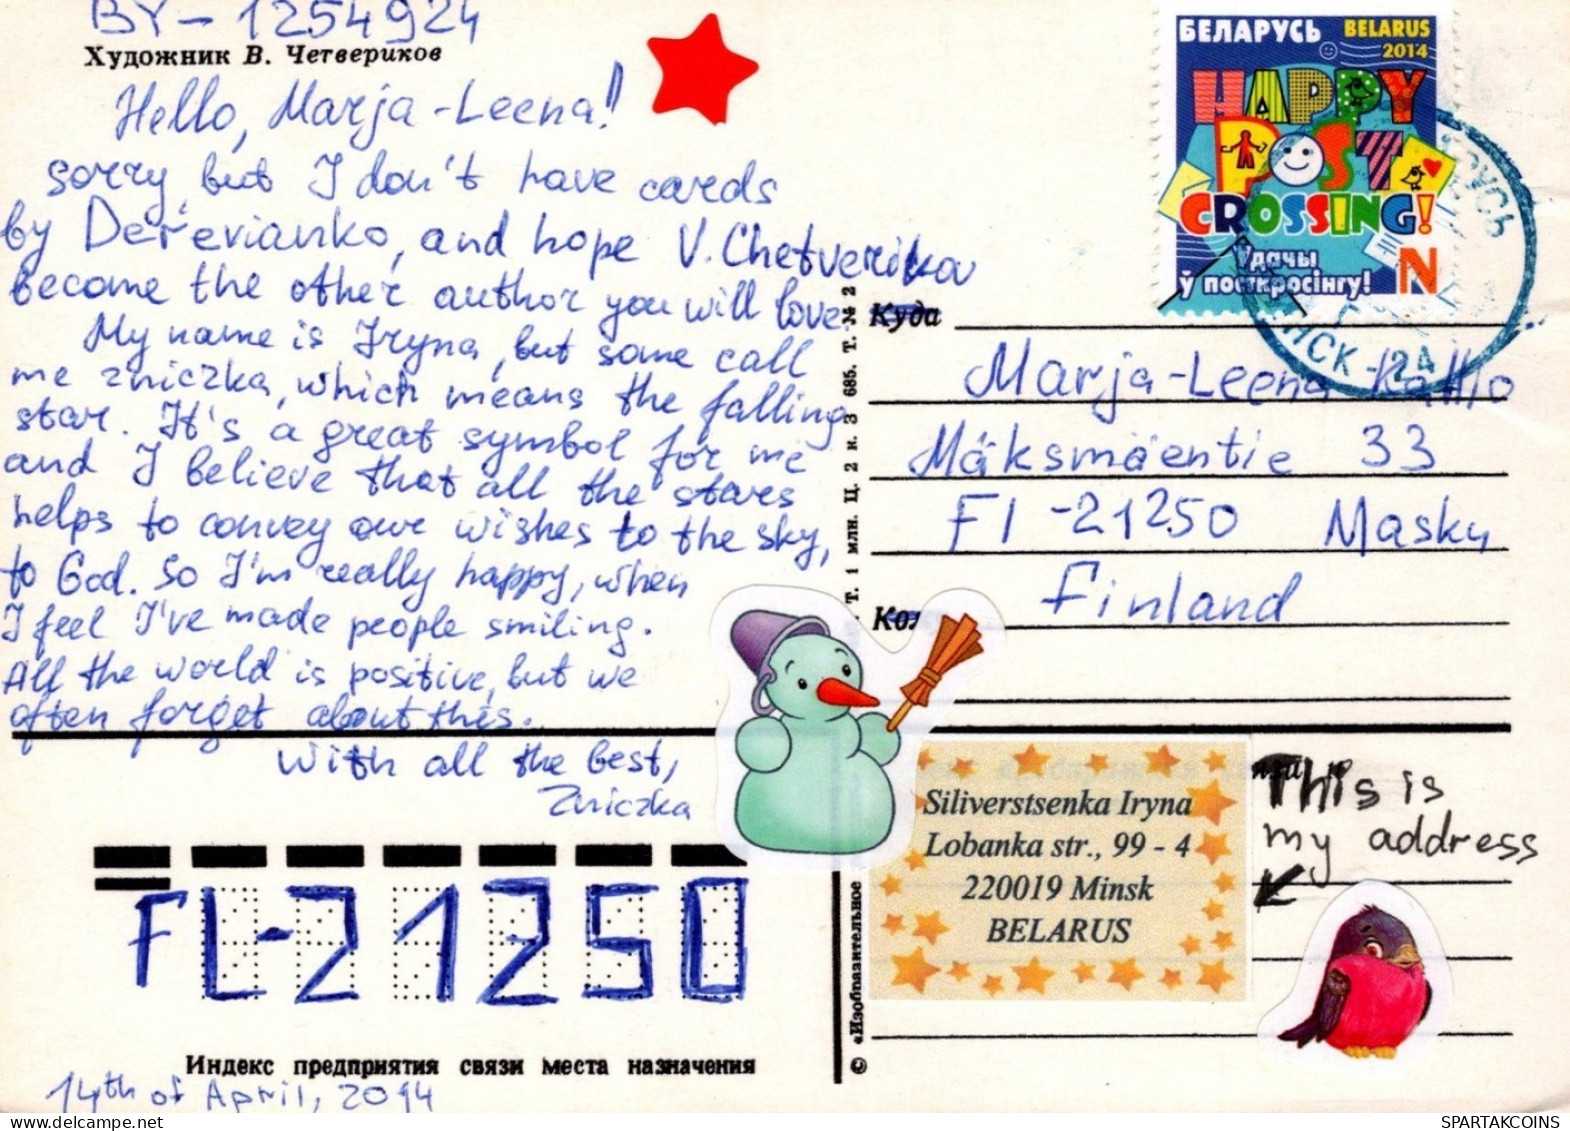 BY-1254924
Художник В. Четвериков
Hello, Marja-Leena!
sorry, but I don't have cards
by Derevianko, and hope V. Chetverikov
become the other author you will love.
My name is Iryna, but some call
me zniczka, which means the falling
star. It's a great symbol for me
and I believe that all the stars
helps to convey our wishes to the sky,
to God. So I'm really happy, when
I feel I've made people smiling.
All the world is positive, but we
often forget about this.
With all the best,
Zniczka
FI-21250
Индекс предприятия связи места назначения
14th of April, 2014
БЕЛАРУСЬ BELARUS
2014
HAPPY
POST
CROSSING!
Удачы
ў посткросінгу! N
МІНСК-24
Куда
Marja-Leena
Mäksmäentie 33
FI-21250 Masku
Finland
Siliverstsenka Iryna
Lobanka str., 99 - 4
220019 Minsk
BELARUS
This is
my address
© «Изобразительное
Т. 1 млн. Ц. 2 к. З 685. Т. № 2
SPARTAKCOINS